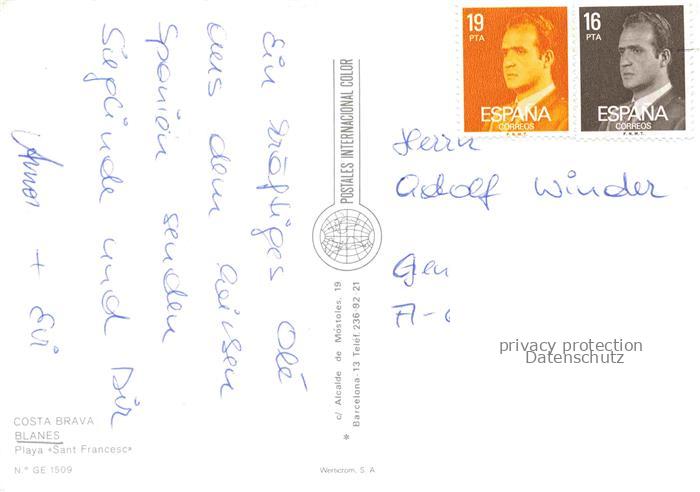 19
PTA
ESPAÑA
CORREOS
F.N.M.T.
16
PTA
ESPAÑA
CORREOS
F.N.M.T.
Ein kräftiges Olé
aus dem heissen
Spanien senden
Sieglinde und Dir
+ Evi
POSTALES INTERNACIONAL COLOR
c/ Alcalde de Móstoles, 19
Barcelona-13 Teléf. 236-92 21
Herrn
Adolf Winder
A-
privacy protection
Datenschutz
COSTA BRAVA
BLANES
Playa «Sant Francesc»
N.º GE 1509
Werticrom, S. A